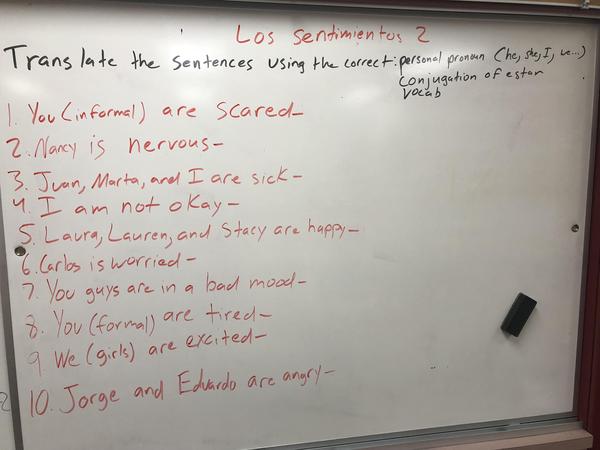 Los sentimientos 2
Translate the sentences using the correct: personal pronoun (he, she, I, we...)
conjugation of estar
vocab
1. You (informal) are scared-
2. Nancy is nervous-
3. Juan, Marta, and I are sick-
4. I am not okay-
5. Laura, Lauren, and Stacy are happy-
6. Carlos is worried-
7. You guys are in a bad mood-
8. You (formal) are tired-
9. We (girls) are excited-
10. Jorge and Eduardo are angry-